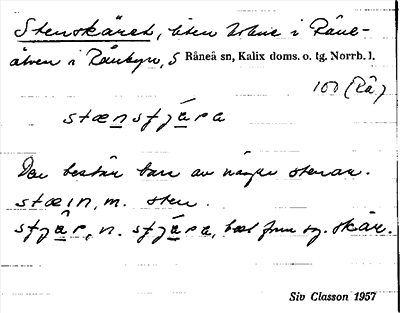 Stenskäret, liten holme i Råne-
älven i Rånbyn, S Råneå sn, Kalix doms. o. tg. Norrb. l.
100 (Rå)
stænsfjára
Den består bara av några stenar.
stæin, m. sten.
sfjær, n. sfjára, best form sg. skär.
Siv Classon 1957